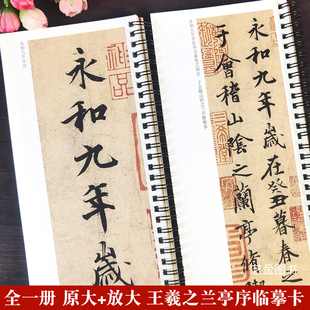 永和九年歲
永和九年歲在癸丑暮春之
于會稽山陰之蘭亭脩
全一册 原大+放大 王羲之兰亭序临摹卡